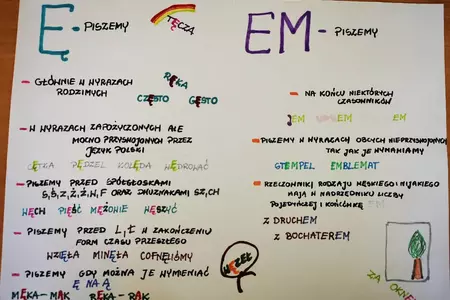 Ę - PISZEMY
TĘCZA
- GŁÓWNIE W WYRAZACH
RODZIMYCH
RĘKA
CZĘSTO GĘSTO
- W WYRAZACH ZAPOŻYCZONYCH ALE
MOCNO PRZYSWOJONYCH PRZEZ
JĘZYK POLSKI
CĘTKA PĘDZEL KOLĘDA WĘDROWAĆ
- PISZEMY PRZED SPÓŁGŁOSKAMI
S, Ś, Z, Ź, Ż, H, F ORAZ DWUZNAKAMI SZ, CH
WĘCH PIĘŚĆ MĘŻOWIE WĘSZYĆ
- PISZEMY PRZED L, Ł W ZAKOŃCZENIU
FORM CZASU PRZESZŁEGO
WZIĘŁA MINĘŁA COFNĘLIŚMY
- PISZEMY GDY MOŻNA JE WYMIENIAĆ
Ę NA Ą
MĘKA - MĄK RĘKA - RĄK
WĘZEŁ
EM - PISZEMY
- NA KOŃCU NIEKTÓRYCH
CZASOWNIKÓW
JEM UMIEM
PISZEMY W WYRAZACH OBCYCH NIEPRZYSWOJONYCH
TAK JAK JE WYMAWIAMY
STEMPEL EMBLEMAT
- RZECZOWNIKI RODZAJU MĘSKIEGO I NIJAKIEGO
MAJĄ W NARZĘDNIKU LICZBY
POJEDYNCZEJ I KOŃCÓWKĘ EM
Z DRUCHEM
Z BOCHATEREM
ZA OKNEM